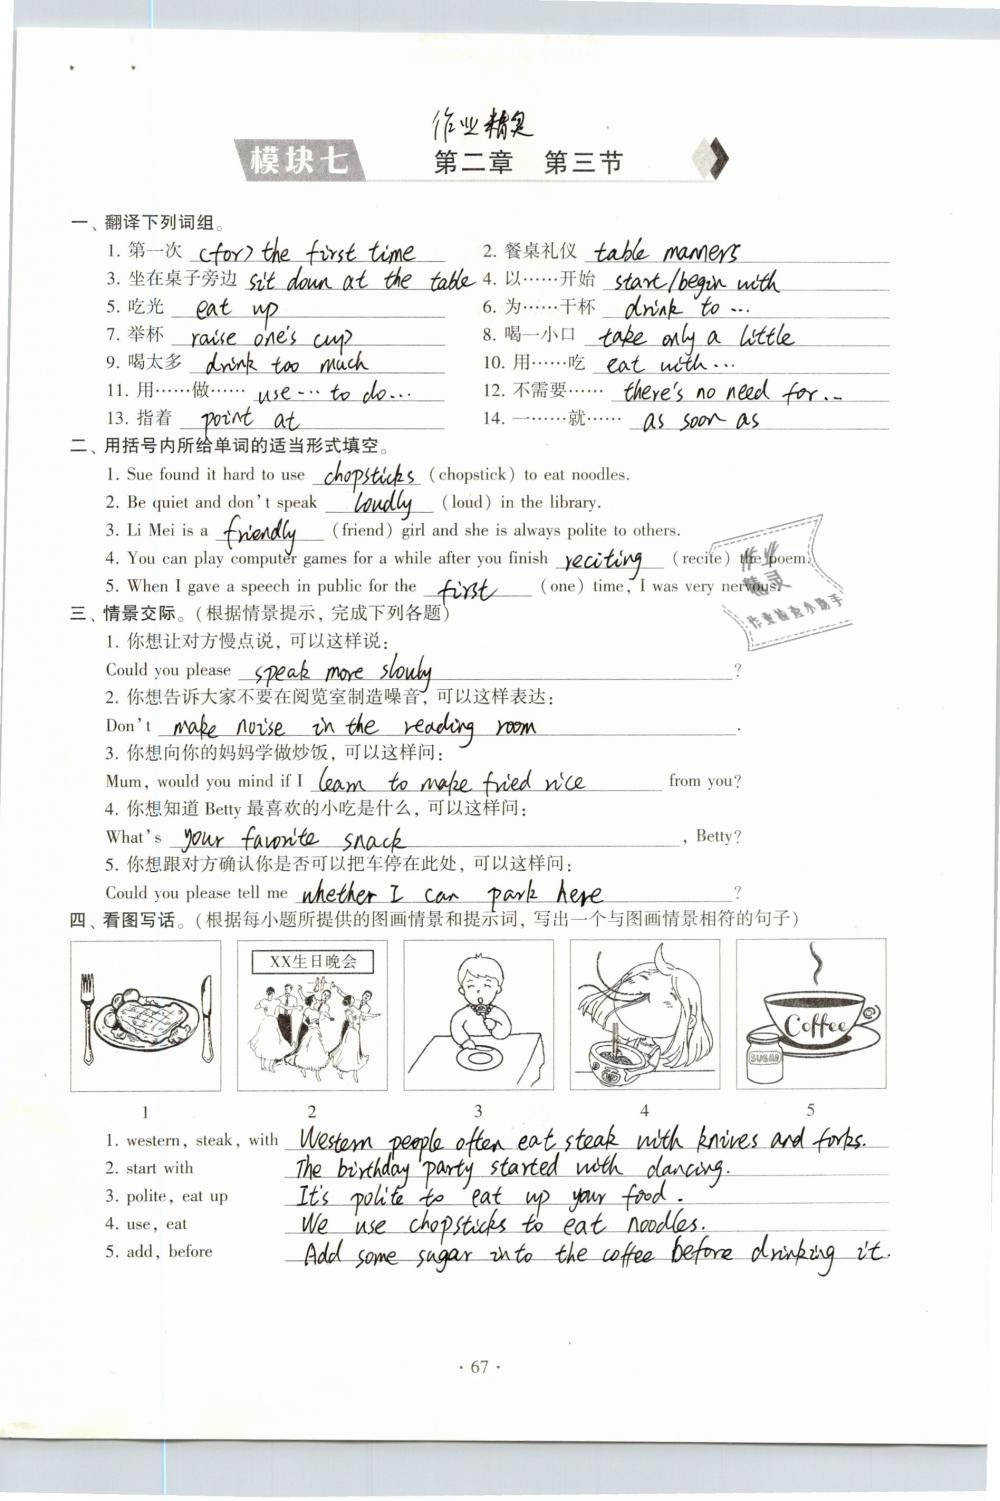 作业精灵
模块七 第二章 第三节
一、翻译下列词组。
1. 第一次 (for) the first time 2. 餐桌礼仪 table manners
3. 坐在桌子旁边 sit down at the table 4. 以……开始 start/begin with
5. 吃光 eat up 6. 为……干杯 drink to ...
7. 举杯 raise one's cup 8. 喝一小口 take only a little
9. 喝太多 drink too much 10. 用……吃 eat with...
11. 用……做…… use ... to do... 12. 不需要…… there's no need for...
13. 指着 point at 14. 一……就…… as soon as
二、用括号内所给单词的适当形式填空。
1. Sue found it hard to use chopsticks (chopstick) to eat noodles.
2. Be quiet and don't speak loudly (loud) in the library.
3. Li Mei is a friendly (friend) girl and she is always polite to others.
4. You can play computer games for a while after you finish reciting (recite) the poem.
5. When I gave a speech in public for the first (one) time, I was very nervous.
作业
精灵
作业检查小助手
三、情景交际。(根据情景提示，完成下列各题)
1. 你想让对方慢点说，可以这样说：
Could you please speak more slowly ?
2. 你想告诉大家不要在阅览室制造噪音，可以这样表达：
Don't make noise in the reading room .
3. 你想向你的妈妈学做炒饭，可以这样问：
Mum, would you mind if I learn to make fried rice from you?
4. 你想知道 Betty 最喜欢的小吃是什么，可以这样问：
What's your favorite snack , Betty?
5. 你想跟对方确认你是否可以把车停在此处，可以这样问：
Could you please tell me whether I can park here ?
四、看图写话。(根据每小题所提供的图画情景和提示词，写出一个与图画情景相符的句子)
XX生日晚会
Coffee
SUGAR
1 2 3 4 5
1. western, steak, with Western people often eat steak with knives and forks.
2. start with The birthday party started with dancing.
3. polite, eat up It's polite to eat up your food.
4. use, eat We use chopsticks to eat noodles.
5. add, before Add some sugar into the coffee before drinking it.
· 67 ·